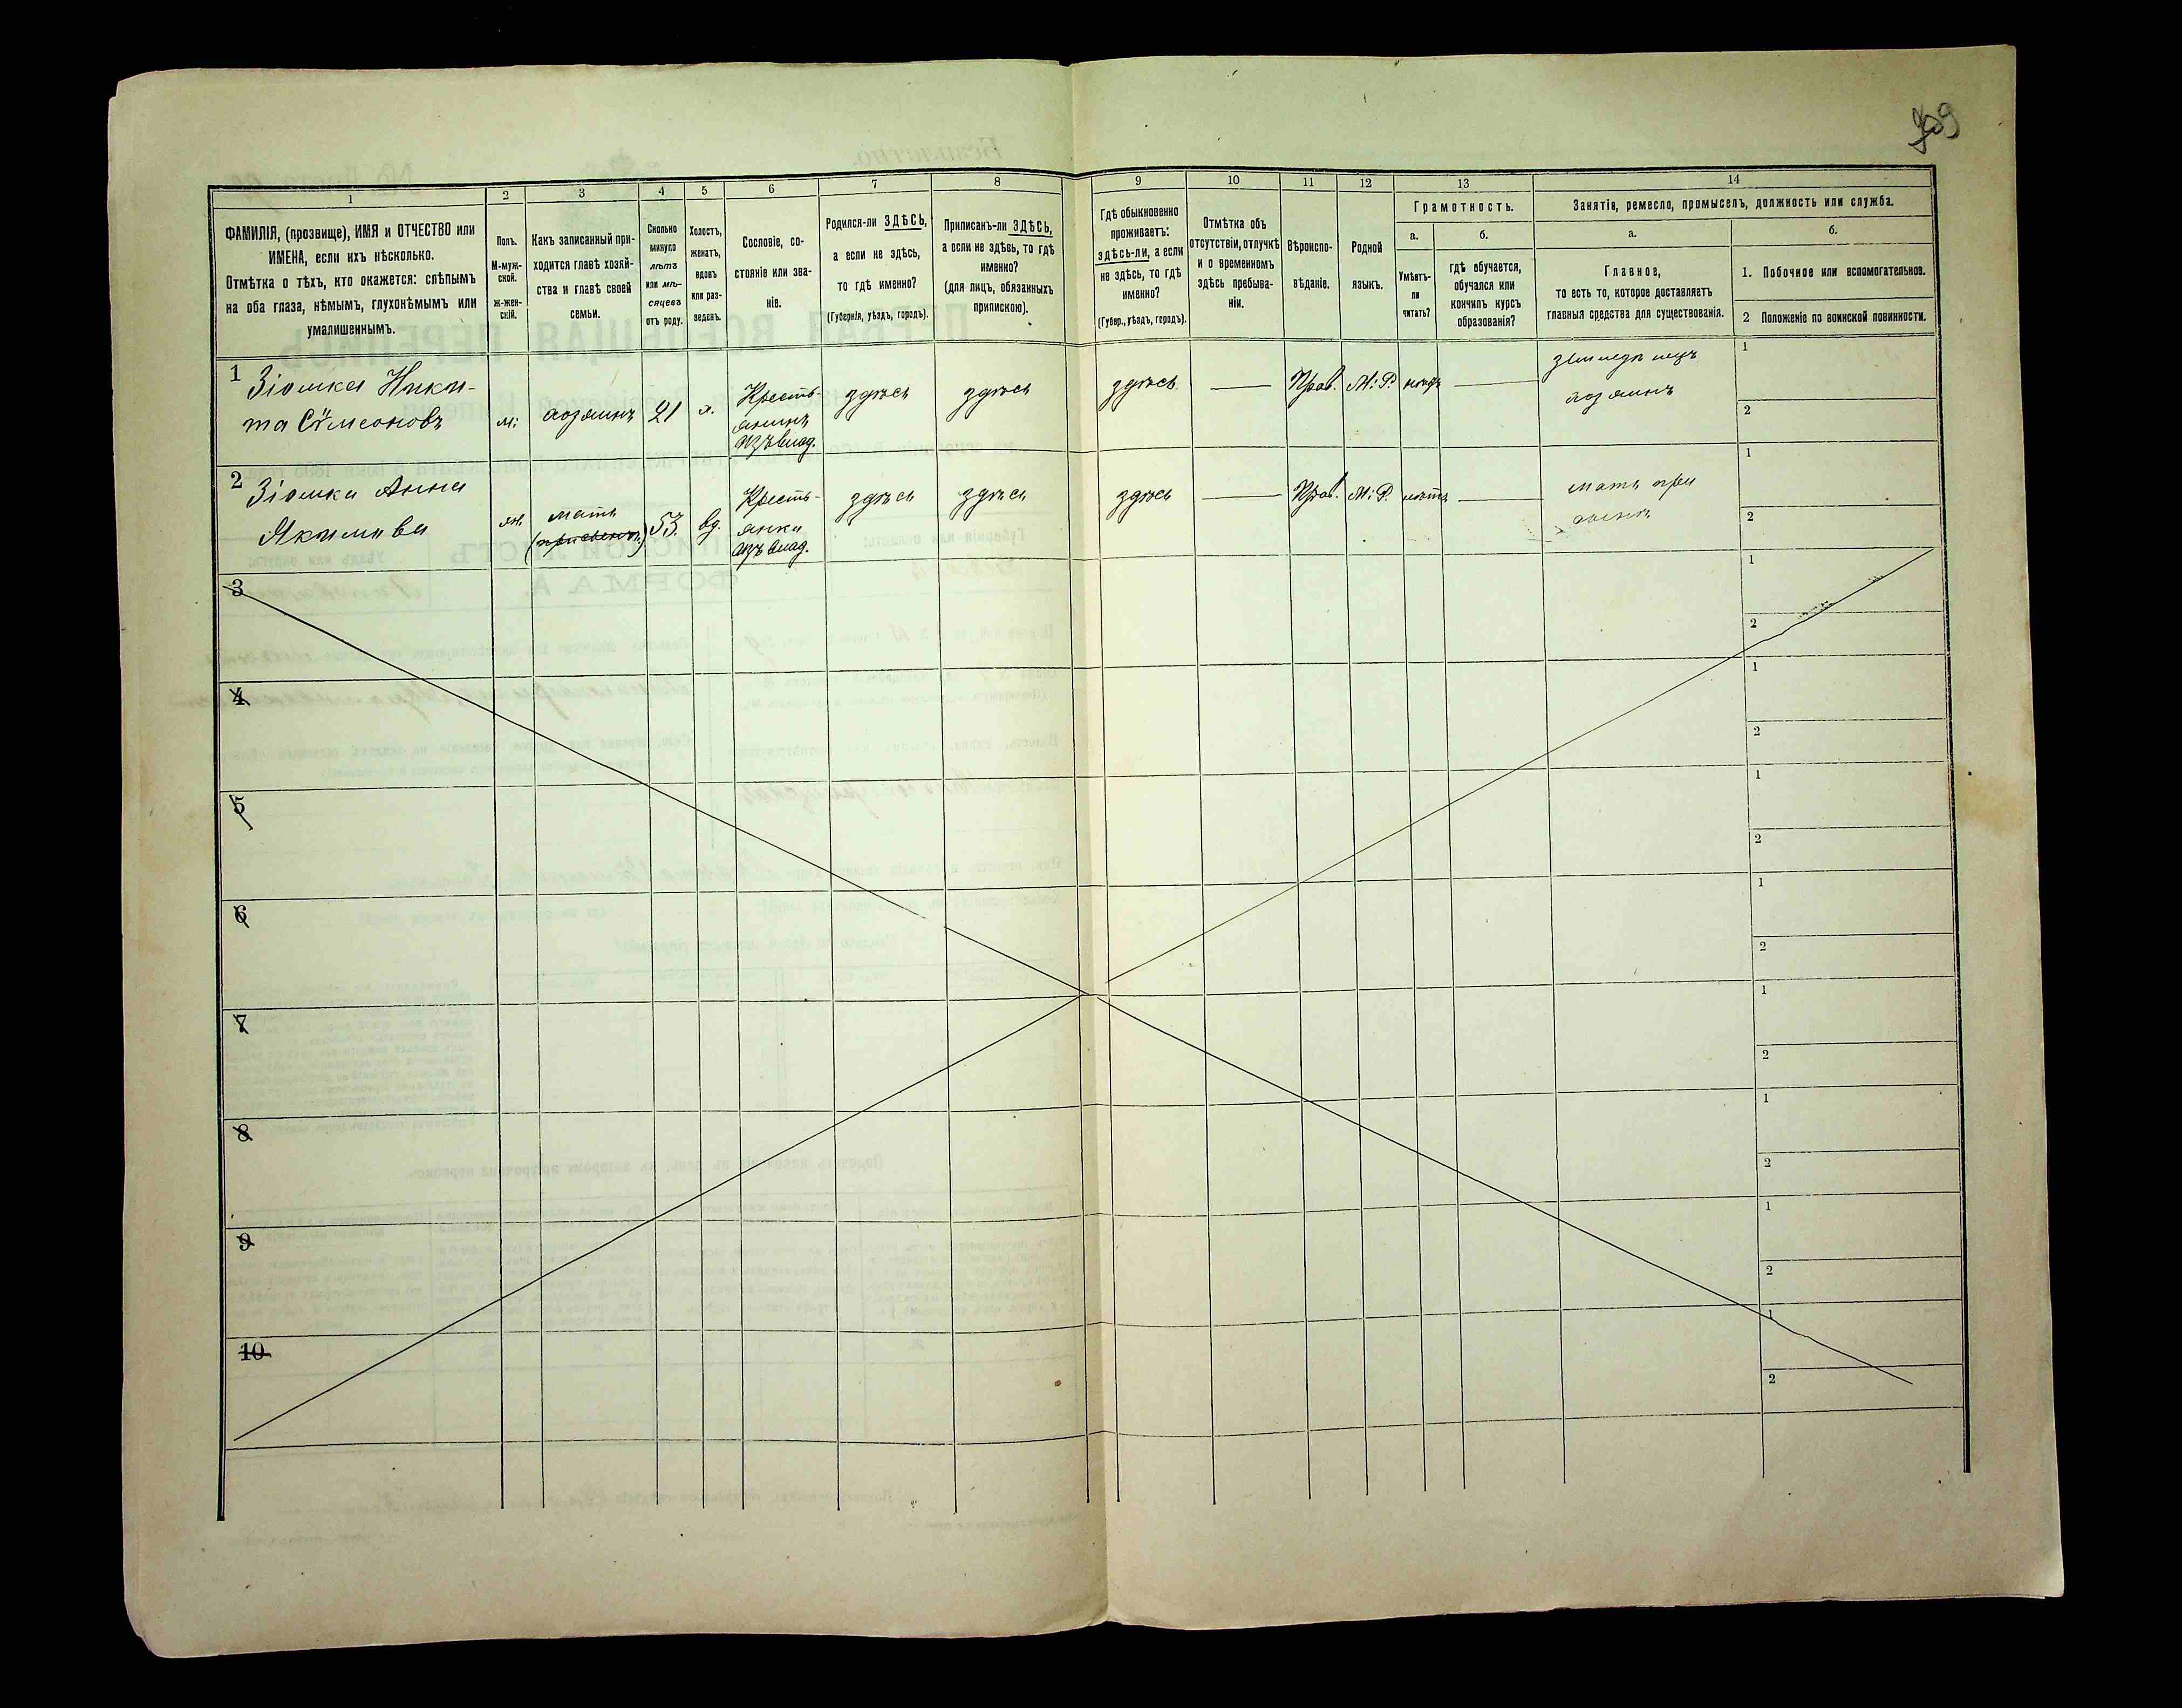 1
2
3
4
5
6
7
8
9
10
11
12
13
14
ФАМИЛІЯ, (прозвище), ИМЯ и ОТЧЕСТВО или
ИМЕНА, если ихъ нѣсколько.
Отмѣтка о тѣхъ, кто окажется: слѣпымъ
на оба глаза, нѣмымъ, глухонѣмымъ или
умалишеннымъ.
Полъ.
М-муж-
ской.
Ж-жен-
скій.
Какъ записанный при-
ходится главѣ хозяй-
ства и главѣ своей
семьи.
Сколько
минуло
лѣтъ
или мѣ-
сяцевъ
отъ роду.
Холостъ,
женатъ,
вдовъ
или раз-
веденъ.
Сословіе, со-
стояніе или зва-
ніе.
Родился-ли ЗДѢСЬ,
а если не здѣсь,
то гдѣ именно?
(Губернія, уѣздъ, городъ).
Приписанъ-ли ЗДѢСЬ,
а если не здѣсь, то гдѣ
именно?
(для лицъ, обязанныхъ
припискою).
Гдѣ обыкновенно
проживаетъ:
здѣсь-ли, а если
не здѣсь, то гдѣ
именно?
(Губер., уѣздъ, городъ).
Отмѣтка объ
отсутствіи, отлучкѣ
и о временномъ
здѣсь пребыва-
ніи.
Вѣроиспо-
вѣданіе.
Родной
языкъ.
Грамотность.
а.
Умѣетъ-
ли
читать?
б.
гдѣ обучается,
обучался или
кончилъ курсъ
образованія?
Занятіе, ремесло, промыселъ, должность или служба.
а.
Главное,
то есть то, которое доставляетъ
главныя средства для существованія.
б.
1. Побочное или вспомогательное.
2 Положеніе по воинской повинности.
1 Зіомка Ники-
та Сѵмеоновъ
м:
хозяинъ
21
х.
Кресть-
янинъ
изъ влад.
здѣсь
здѣсь
здѣсь
Прав.
М: Р.
нѣтъ
хозяинъ
1
2
2 Зіомка Анна
Якимова
ж.
мать
53.
вд.
Кресть-
янка
изъ влад.
здѣсь
здѣсь
здѣсь
Прав.
М: Р.
нѣтъ
мать при
1
2
3
1
2
4
1
2
5
1
2
6
1
2
7
1
2
8
1
2
9
1
2
10
1
2